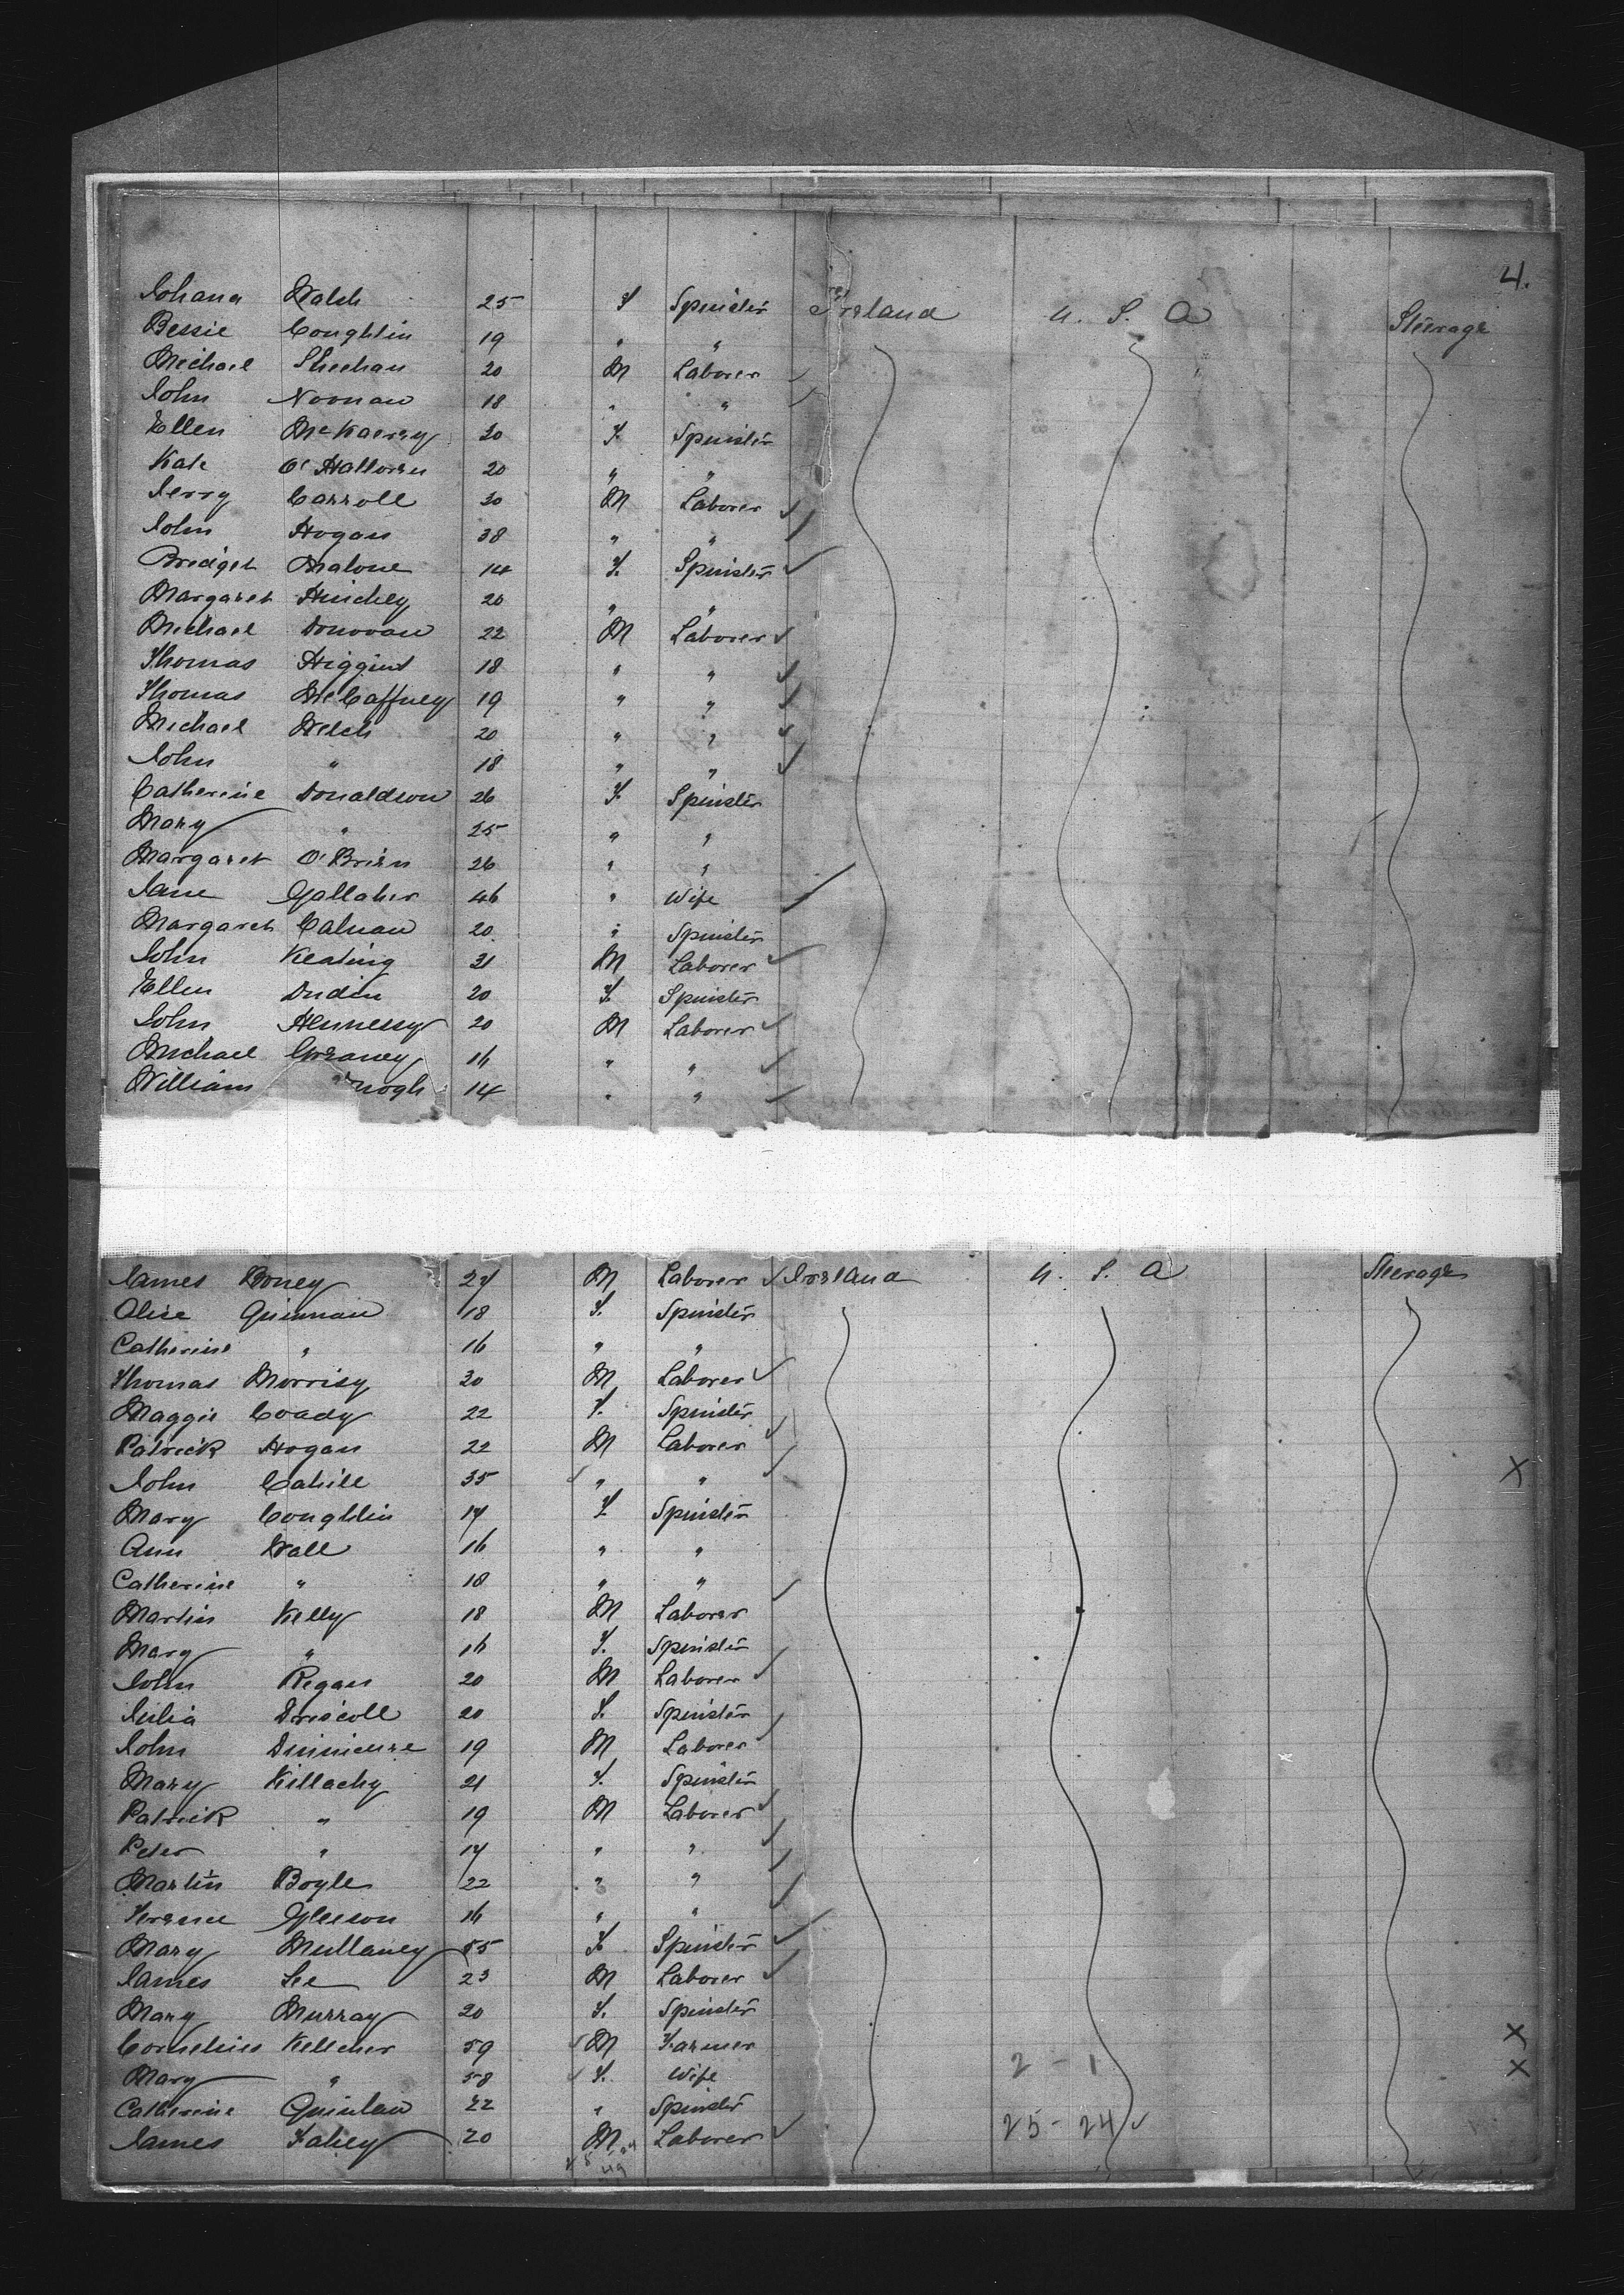 4.
Johana Walsh 25 F Spinster Ireland U. S. A Steerage
Bessie Coughlin 19 " "
Michael Sheehan 20 M Laborer
John Noonan 18 " "
Ellen 30 F. Spinster
Kate O'Halloran 20 " "
Jerry Carroll 30 M Laborer
John Hogan 38 " "
Bridget Malone 14 F. Spinster
Margaret Hinchey 20 " "
Michael Donovan 22 M Laborer
Thomas Higgins 18 " "
Thomas McCaffney 19 " "
Michael Welch 20 " "
John " 18 " "
Catherine Donaldson 26 F. Spinster
Mary " 25 " "
Margaret O'Brien 26 " "
Jane Gallaher 46 " Wife
Margaret Calnan 20 " Spinster
John Keating 31 M Laborer
Ellen 20 F. Spinster
John Hennessy 20 M Laborer
Michael 16 " "
William 14 " "
James 27 M Laborer Ireland U. S. A Steerage
Alice Quinnan 18 F. Spinster
Catherine " 16 " "
Thomas Morrisy 30 M Laborer
Maggie Coady 22 F. Spinster
Patrick Hogan 22 M Laborer
John Cahill 35 " " X
Mary Coughlin 17 F Spinster
Ann Wall 16 " "
Catherine " 18 " "
Martin Kelly 18 M Laborer
Mary " 16 F. Spinster
John Regan 20 M Laborer
Julia Driscoll 20 F. Spinster
John 19 M Laborer
Mary Killachy 21 F. Spinster
Patrick " 19 M Laborer
Peter " 17 " "
Martin Boyle 22 " "
Gleeson 16 " "
Mary Mullaney 55 F. Spinster
James Lee 23 M Laborer
Mary Murray 20 F. Spinster
Cornelius Kelleher 59 M Farmer X
Mary " 58 F. Wife 2 - 1 X
Catherine Quinlan 22 " Spinster
James Fahey 20 M Laborer 25 - 24